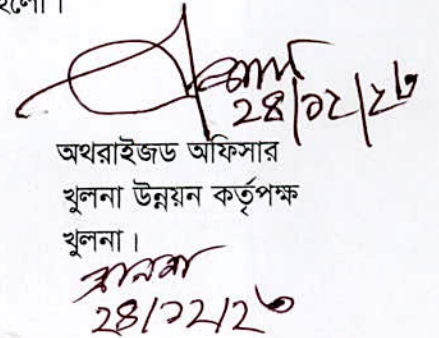 হলো।
২৪/১২/২৩
অথরাইজড অফিসার
খুলনা উন্নয়ন কর্তৃপক্ষ
খুলনা।
২৪/১২/২৩